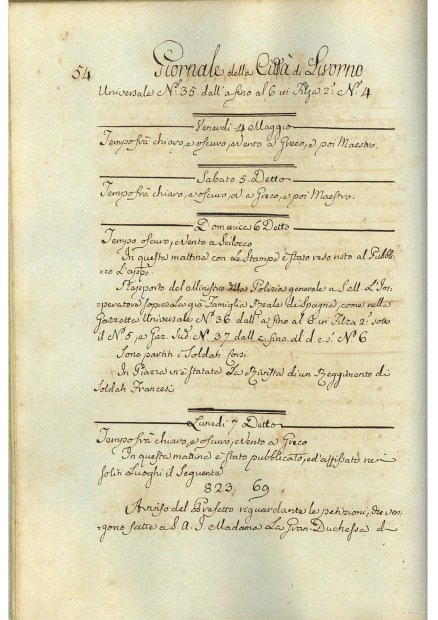 54
Giornale della Città di Livorno
Universale Nº. 35. dall' a fino al 6 in Filza 2ª. Nº. 4
Venerdì 4 Maggio
Tempo frà chiaro, e oscuro, e vento a Greco, e poi Maestro.
Sabato 5. Detto
Tempo frà chiaro, e oscuro, e a Greco, e poi Maestro.
Domenica 6 Detto
Tempo oscuro, e vento a Scilocco
In questa mattina con le Stampe è stato reso noto al Pubbli-
co L'appo.
Rapporto del Ministro della Polizia generale a S. M. L'Im-
peratore sopra La già Famiglia Reale di Spagna, come nella
Gazzetta Universale Nº. 36. dall' a fino al 6. in Filza 2ª. sotto
il Nº. 5, e Gaz. Nº. 37 dall' c. fino al d c. sº. Nº 6
Sono partiti i Soldati Corsi
In Piazza vi è stata La Rivista di un Reggimento di
Soldati Francesi
Lunedì 7 Detto
Tempo frà chiaro, e oscuro, e vento a Greco
In questa mattina è stato pubblicato, ed affissato nei
soliti Luoghi il Seguente
823. 69
Avviso del Prefetto riguardante le petizioni, che ven-
gono fatte a S. A. I. Madama La Gran-Duchessa di